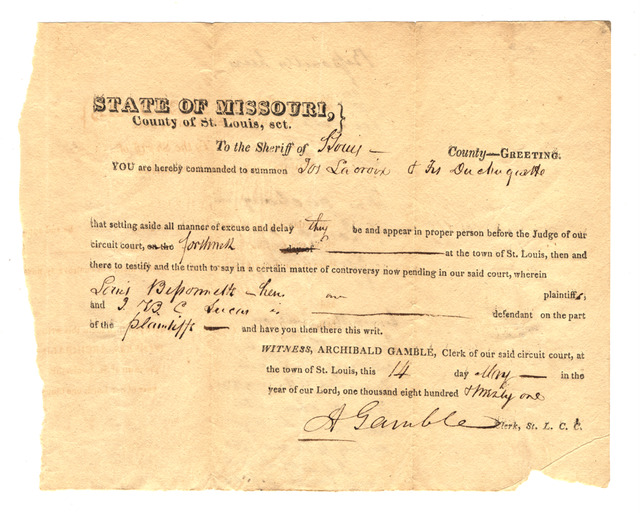 STATE OF MISSOURI, }
County of St. Louis, sct.
To the Sheriff of St Louis — County—GREETING.
YOU are hereby commanded to summon Jos Lacroix & Frs Duchuquette
that setting aside all manner of excuse and delay they be and appear in proper person before the Judge of our
circuit court, on the forthwith day of — at the town of St. Louis, then and
there to testify and the truth to say in a certain matter of controversy now pending in our said court, wherein
Louis Bissonnette heirs are plaintiffs;
and J B C Lucas is — defendant on the part
of the plaintiffs — and have you then there this writ.
WITNESS, ARCHIBALD GAMBLE, Clerk of our said circuit court, at
the town of St. Louis, this 14 day May — in the
year of our Lord, one thousand eight hundred & twenty one
A Gamble Clerk, St. L. C. C.